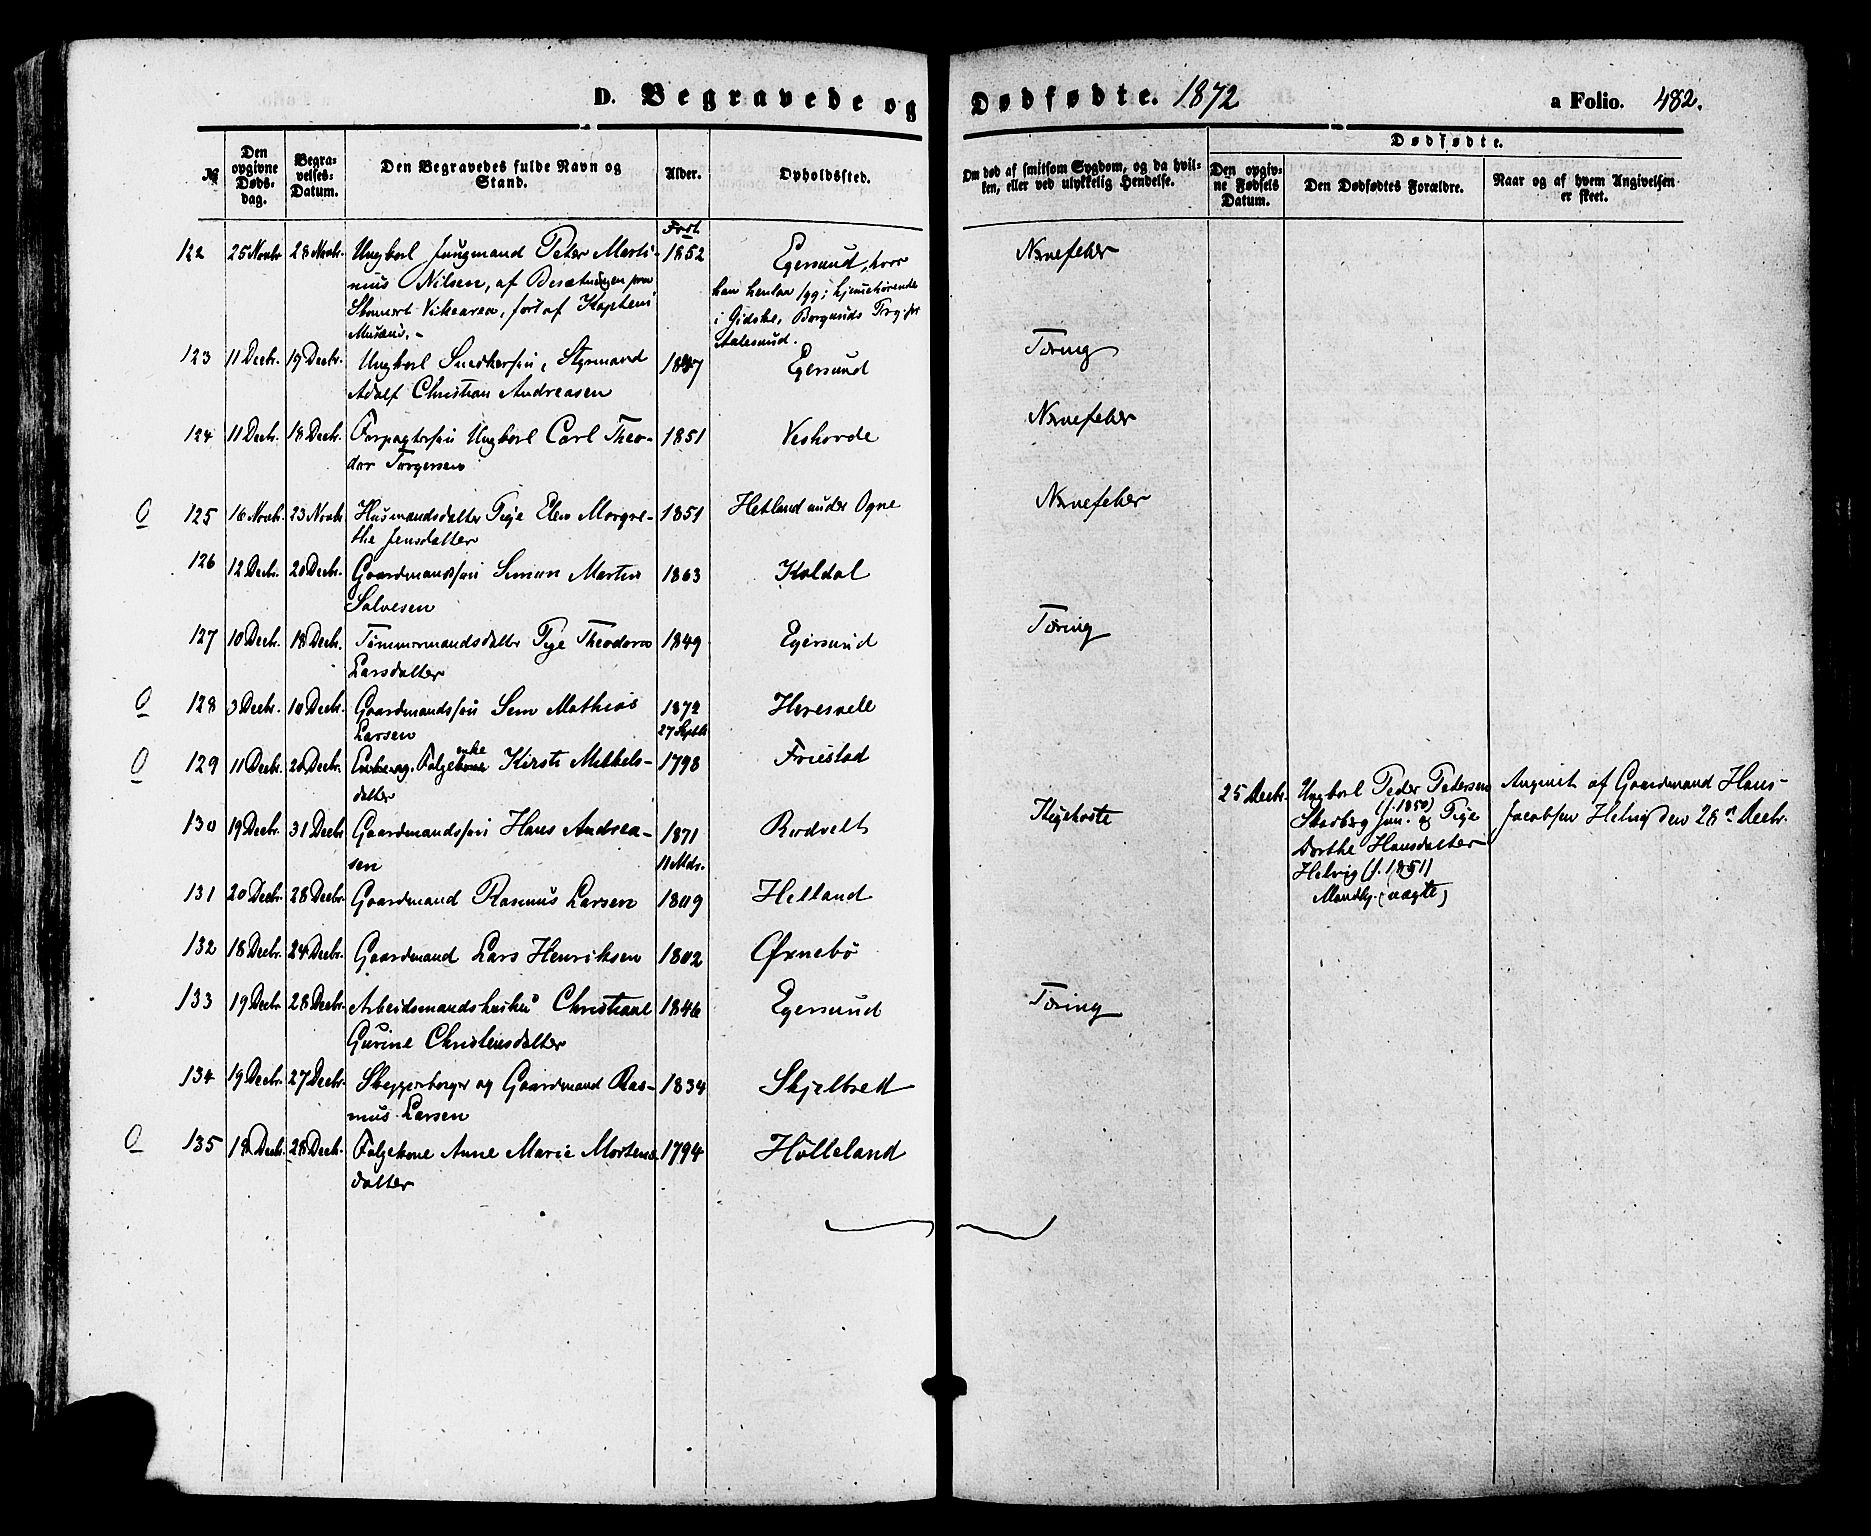 D. Begravede og Dødfødte. 1872 a Folio. 482.
Dødfødte.
№
Den opgivne Døds-dag.
Begra-velses-Datum.
Den Begravedes fulde Navn og Stand.
Alder.
Opholdssted.
Om død af smitsom Sygdom, og da hvil-
ken, eller ved ulykkelig Hendelse.
Den opgiv-ne Fødsels Datum.
Den Dødfødtes Forældre.
Naar og af hvem Angivelsen er skeet.
122 25 Novbr 28 Novbr. Ungkarl Jungmand Peter Marti- 1852 Egersund, hvor Nervefeber
mus Nilsen, af Besætningen paa han henlaa syg; hjemmehørende
ført af Kaptein i Gidske, Borgunds Prgj.
Aalesund.
123 11 Decbr. 19 Decbr. Ungkarl Snedkersøn, Styrmand 1847 Egersund Tæring
Adolf Christian Andreasen
124 11 Decbr. 18 Decbr. Forpagtersøn Ungkarl Carl Theo- 1851 Veshovde Nervefeber
dor Torgersen
O 125 16 Novbr. 23 Novbr Husmandsdatter Pige Elen Margre- 1851 Hetland under Ogne Nervefeber
the Jensdatter
126 12 Decbr. 20 Decbr. Gaardmandssøn Simon Martin 1863 Koldal
Salvesen
127 10 Decbr. 18 Decbr. Tømmermandsdatter Pige Theodora 1849 Egersund Tæring
Larsdatter
O 128 3 Decbr. 10 Decbr. Gaardmandssøn Sem Mathias 1872 Heresvell
Larsen 27 Septbr
O 129 11 Decbr. 20 Decbr. Kirsti Mikkels- 1798 Friestad
datter
130 19 Decbr 31 Decbr Gaardmandssøn Hans Andrea- 1871 Rodvelt Kighoste
sen 11 Mdr.
25 Decbr. Ungkarl Peder Pedersen
Skadberg (f. 1850) Jun. og Pige
Dorthe Hansdatter
Helvig (f. 1851)
(uægte)
Angivet af Gaardmand Hans
Jacobsen Helvig den 28de Decbr.
131 20 Decbr. 28 Decbr. Gaardmand Rasmus Larsen 1809 Helland
132 18 Decbr. 24 Decbr. Gaardmand Lars Henriksen 1802 Ørnebø
133 19 Decbr 28 Decbr. Arbeidsmandshustru Christiane 1846 Egersund Tæring
Gurine Christensdatter
134 19 Decbr. 27 Decbr. Skipperborger og Gaardmand Ras- 1834 Skjelbred
mus Larsen
O 135 18 Decbr. 28 Decbr. Folgekone Anne Marie Mortens- 1794 Hølleland
datter